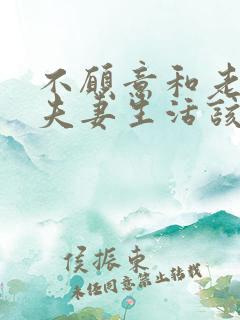 不愿意和老
夫妻生活该
侯振东
未经同意禁止转载